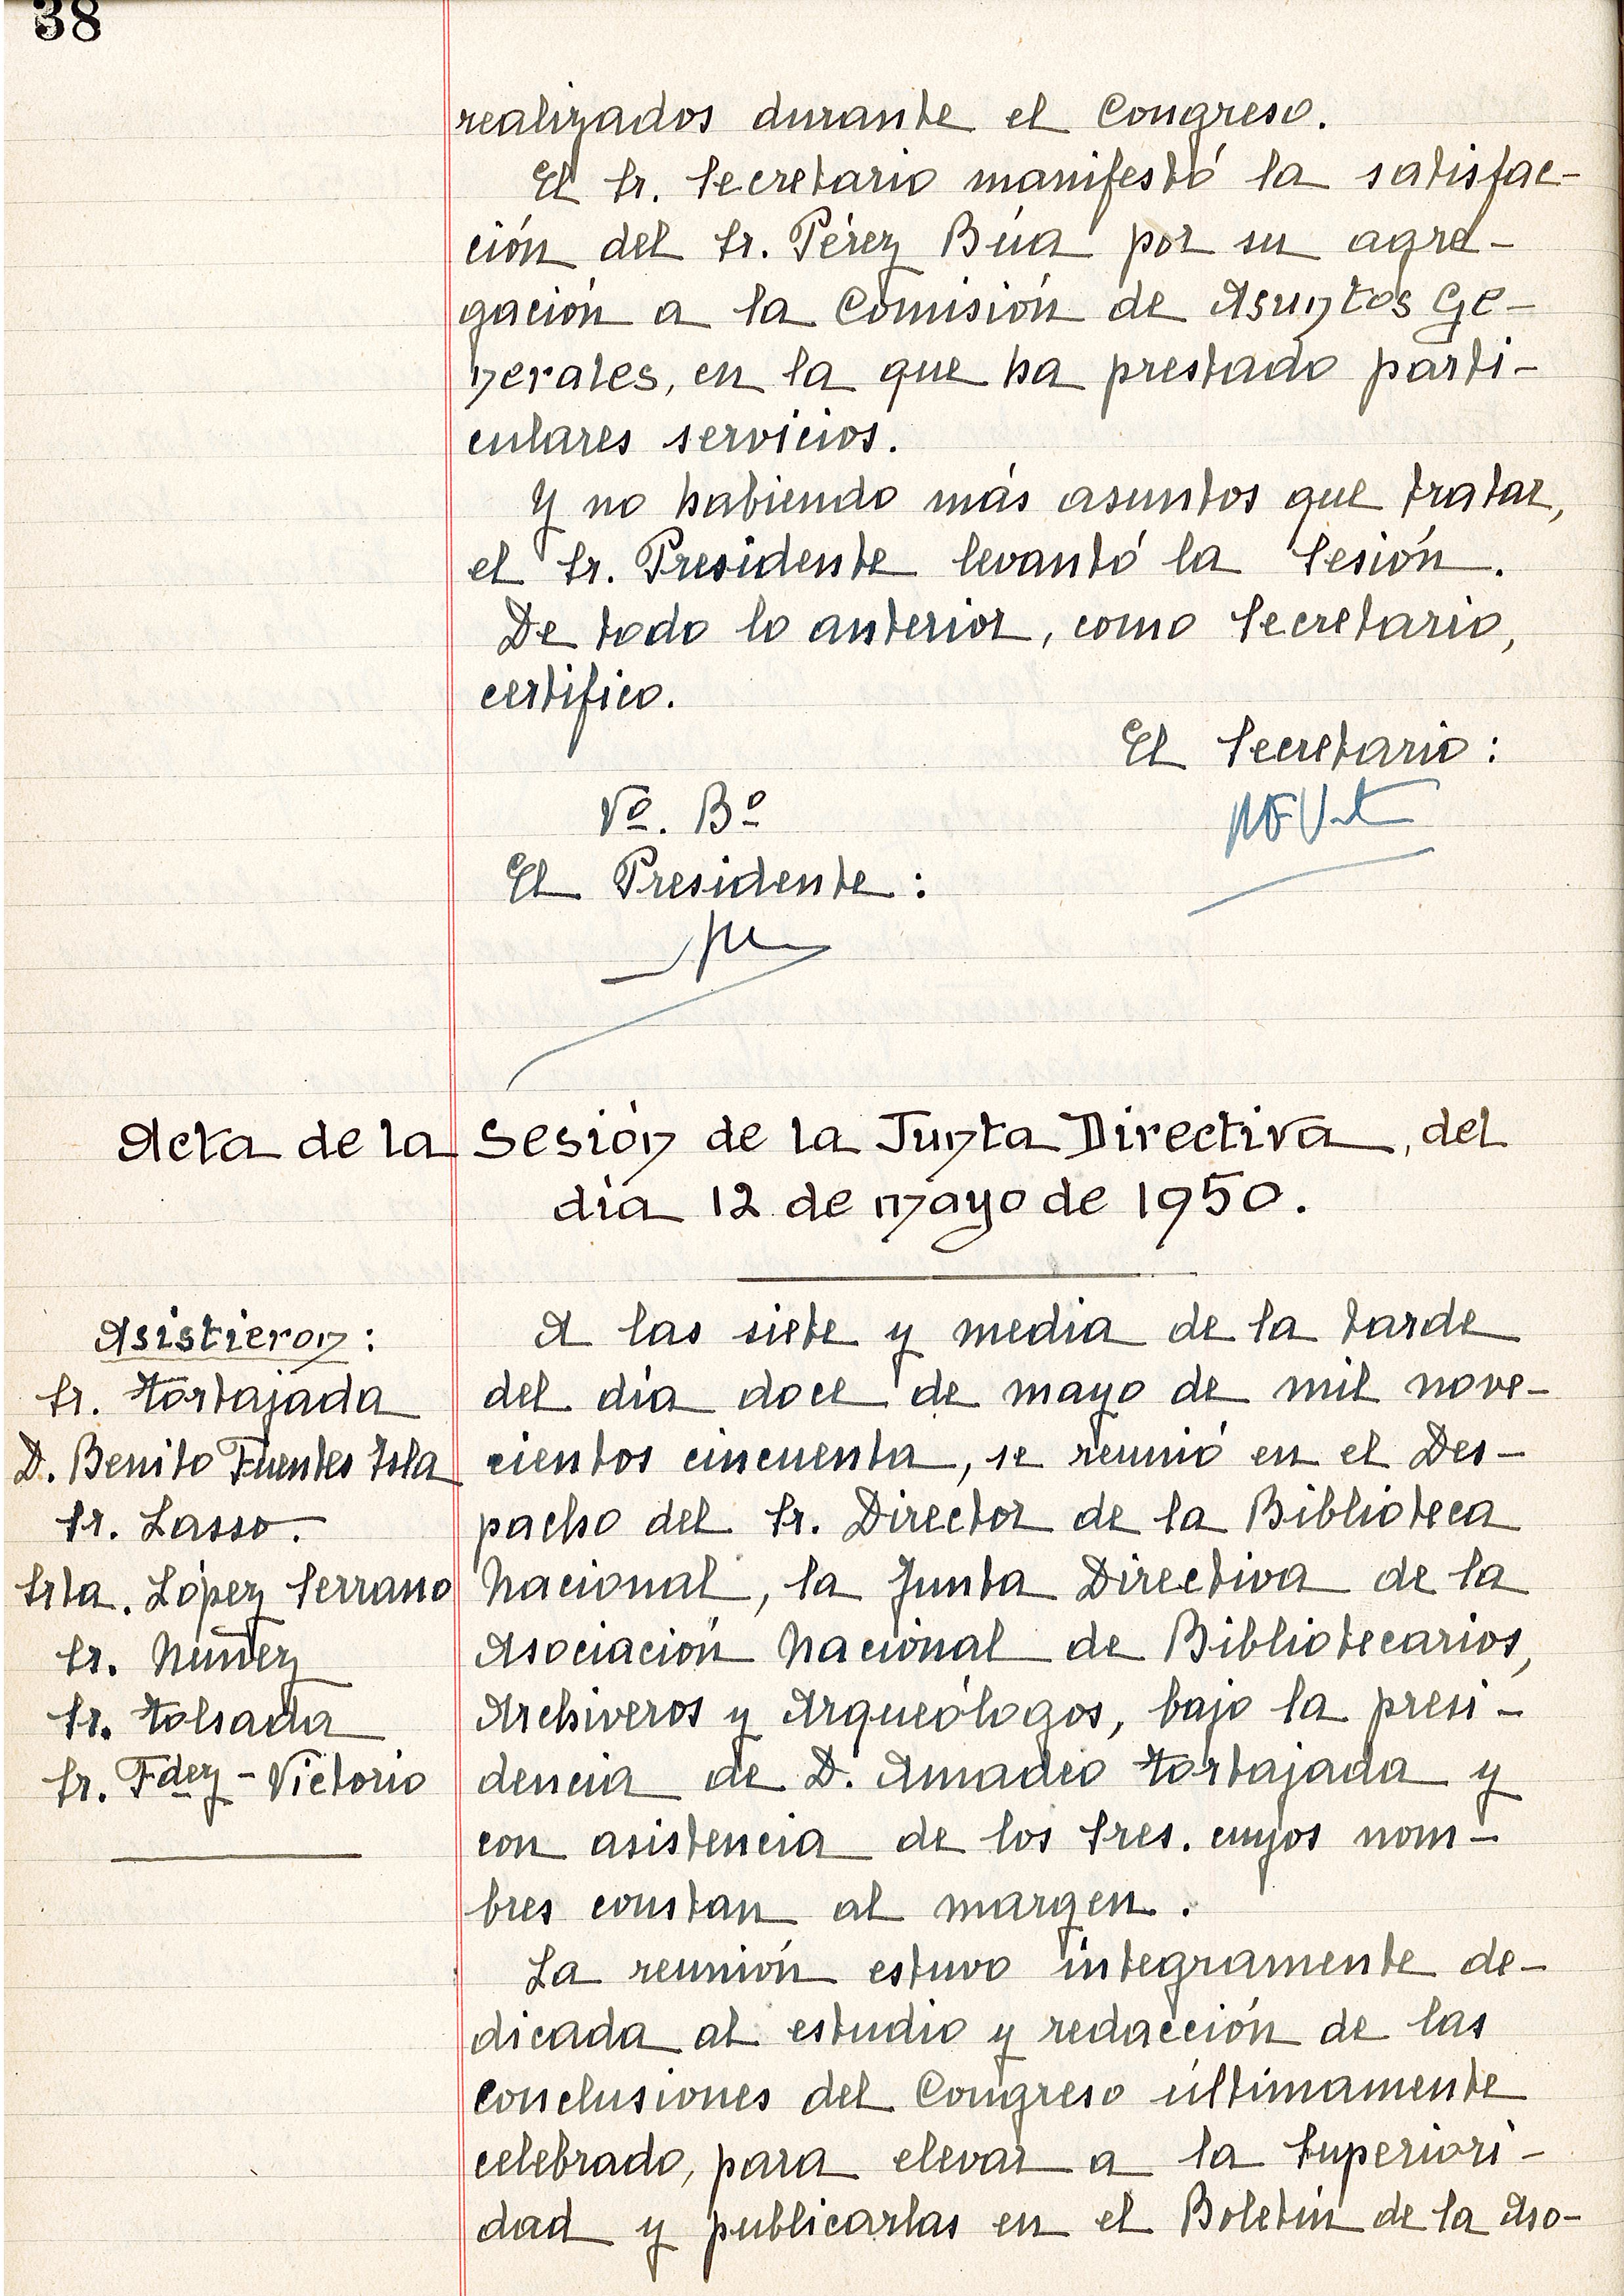 38
realizados durante el Congreso.
El Sr. Secretario manifestó la satisfac-
ción del Sr. Pérez Búa por su agre-
gación a la Comisión de Asuntos Ge-
nerales, en la que ha prestado parti-
culares servicios.
Y no habiendo más asuntos que tratar,
el Sr. Presidente levantó la Sesión.
De todo lo anterior, como Secretario,
certifico.
El Secretario:
Vº. Bº
El Presidente:
Acta de la Sesión de la Junta Directiva, del
día 12 de mayo de 1950.
Asistieron:
Sr. Tortajada
D. Benito Fuentes Isla
Sr. Lasso.
Srta. López Serrano
Sr. Núñez
Sr. Tolsada
Sr. Fdez-Victorio
A las siete y media de la tarde
del día doce de mayo de mil nove-
cientos cincuenta, se reunió en el Des-
pacho del Sr. Director de la Biblioteca
Nacional, la Junta Directiva de la
Asociación Nacional de Bibliotecarios,
Archiveros y Arqueólogos, bajo la presi-
dencia de D. Amadeo Tortajada y
con asistencia de los Sres. cuyos nom-
bres constan al margen.
La reunión estuvo íntegramente de-
dicada al estudio y redacción de las
conclusiones del Congreso últimamente
celebrado, para elevar a la Superiori-
dad y publicarlas en el Boletín de la Aso-